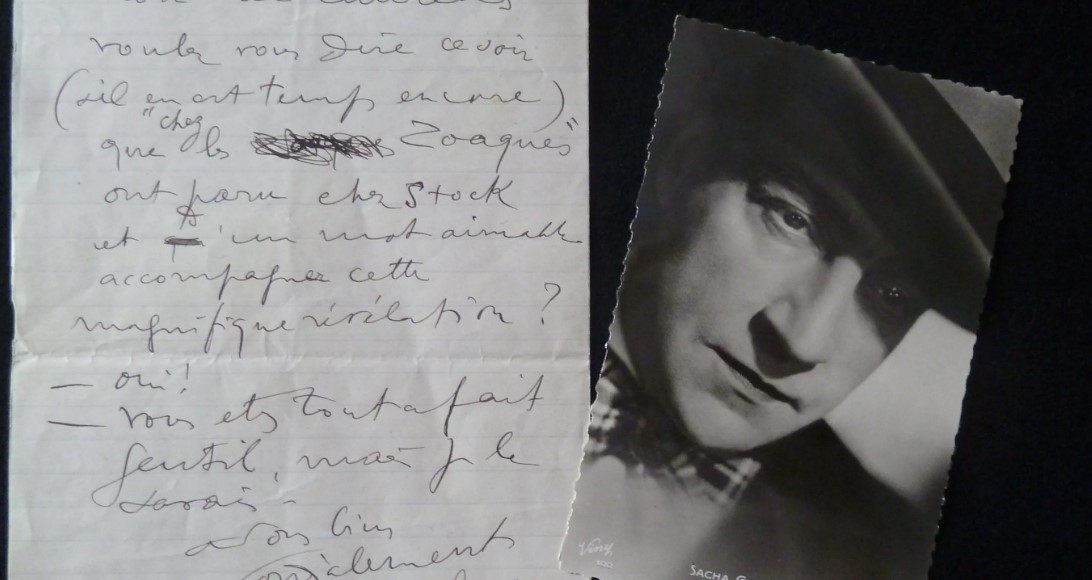 voulez vous dire ce soir
(s'il en est temps encore)
que "chez les Zoaques"
ont paru chez Stock
et d'un mot aimable
accompagner cette
magnifique révélation ?
— oui !
— vous etes tout a fait
gentil, mais je le
savais.
Véry
500
SACHA G